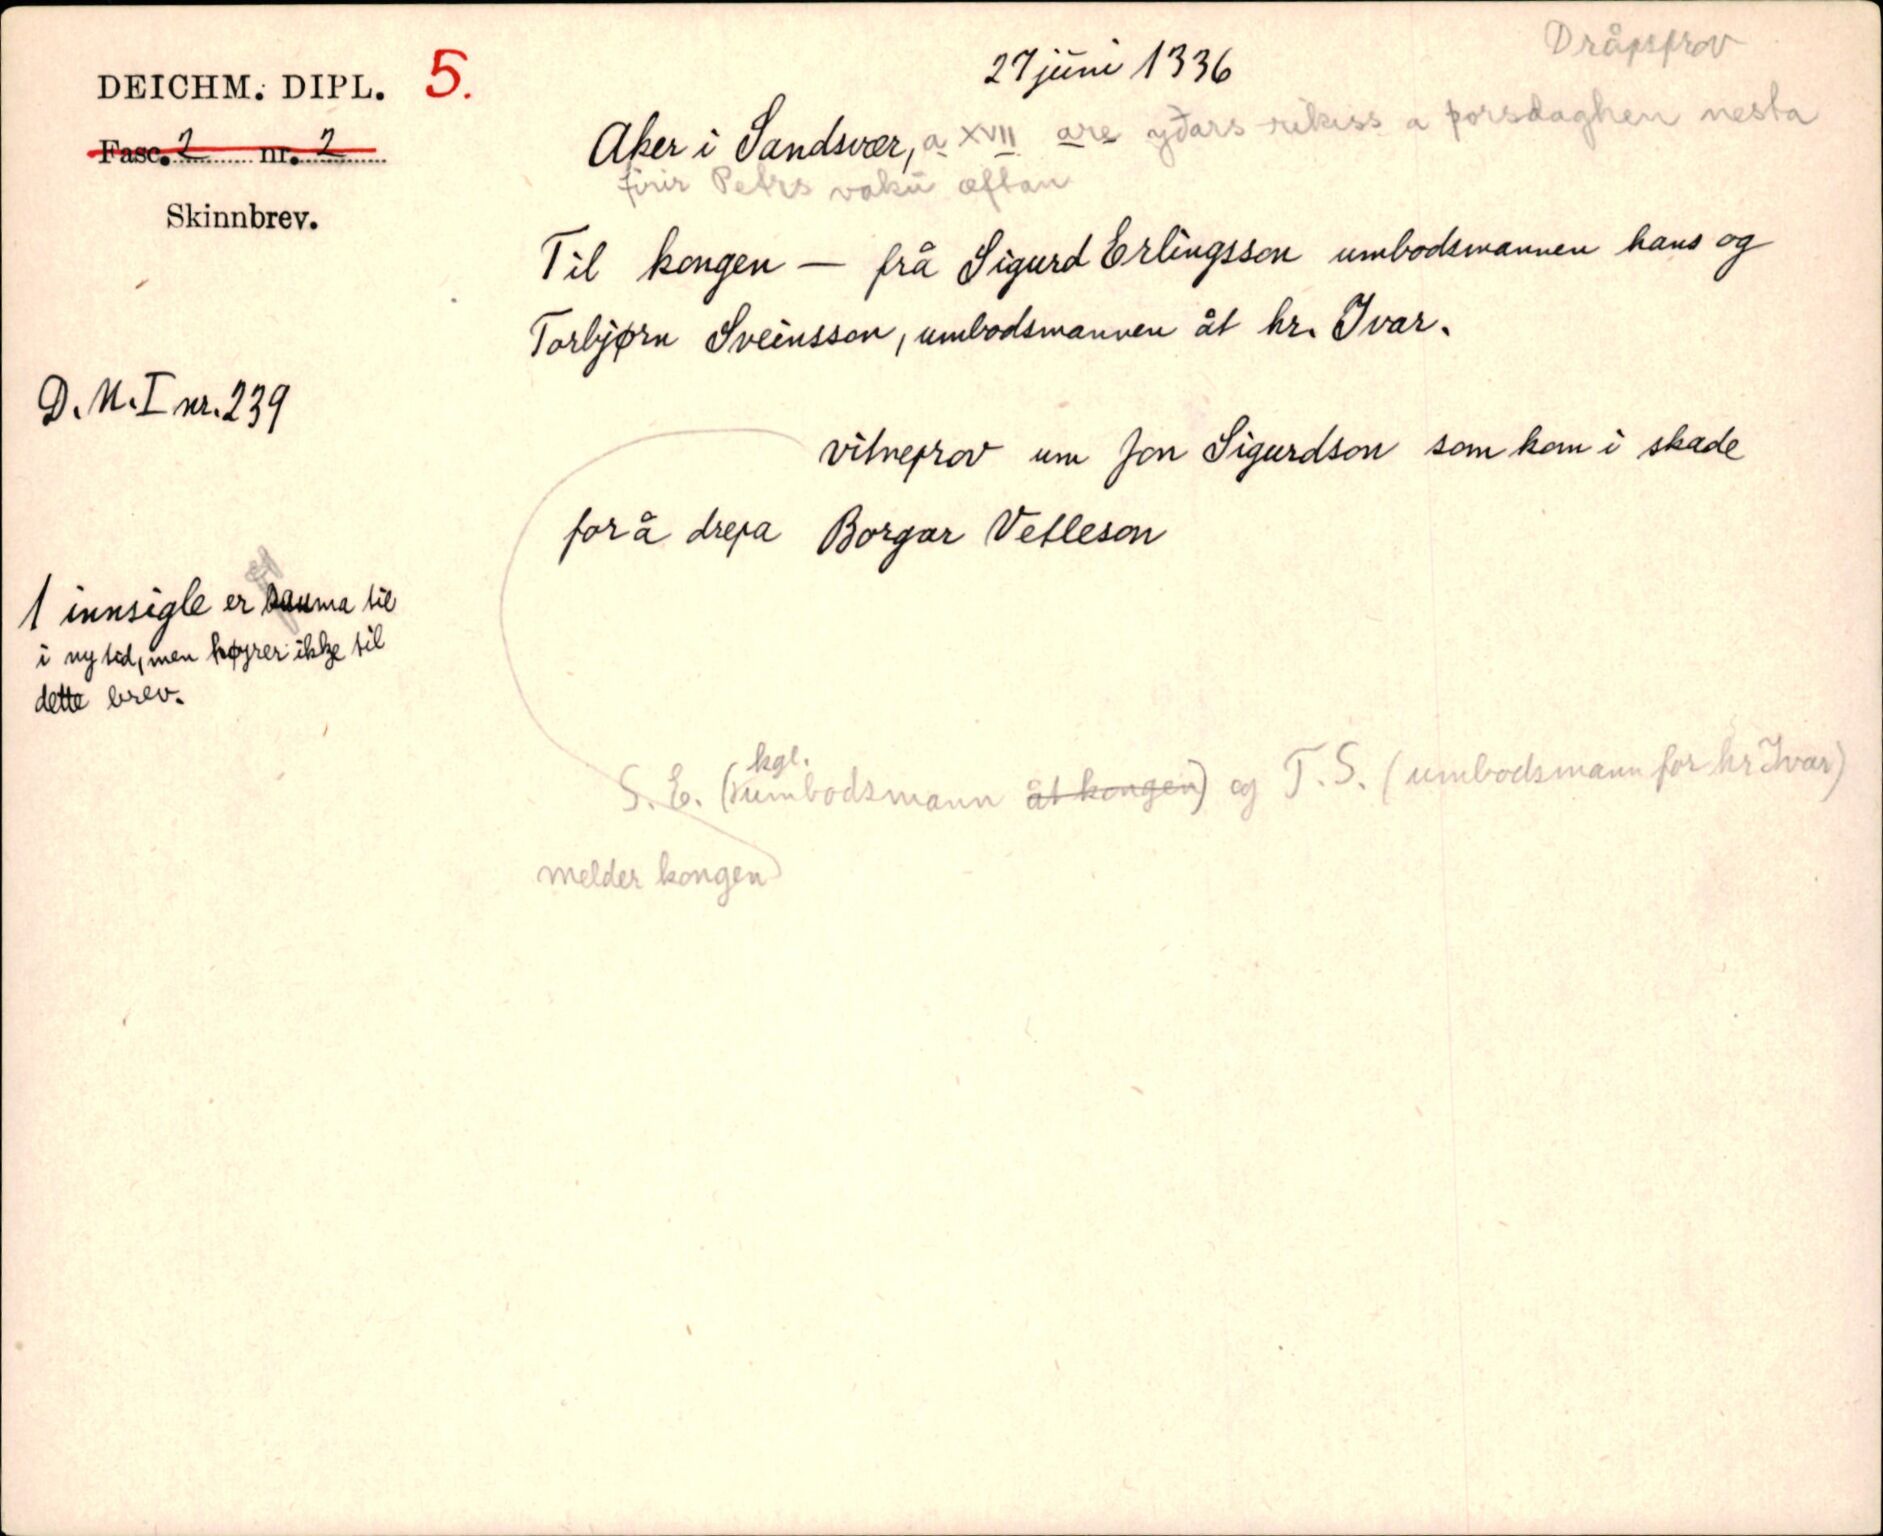 DEICHM. DIPL. 5.
Fasc. 2 nr. 2
Skinnbrev.
D.N. I nr. 239
1 innsigle er sauma til
i ny tid, men høyrer ikkje til
dette brev.
Dråpsprov
27 juni 1336
Aker i Sandsvær, a XVII are yðars rikiss a þorsdaghen nesta
firir Petrs voku æftan
Til kongen — frå Sigurd Erlingsson umbodsmannen hans og
Torbjørn Sveinsson, umbodsmannen åt hr. Ivar.
vitneprov um Jon Sigurdson som kom i skade
for å drepa Borgar Vetleson
kgl.
S. E. (umbodsmann åt kongen) og T. S. (umbodsmann for hr Ivar)
melder kongen